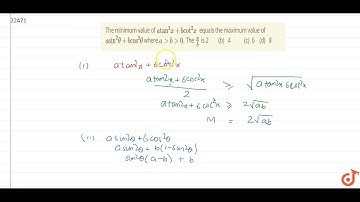 22471
The minimum value of atan²x + bcot²x equals the maximum value of
asin²θ + bcos²θ where a > b > 0. The a/b is 2 (b) 4 (c) 6 (d) 8
(i) a tan²x + b cot²x
a tan²x + b cot²x / 2 ≥ √a tan²x b cot²x
a tan²x + b cot²x ≥ 2√ab
M = 2√ab
(ii) a sin²θ + b cos²θ
a sin²θ + b(1-sin²θ)
sin²θ (a-b) + b